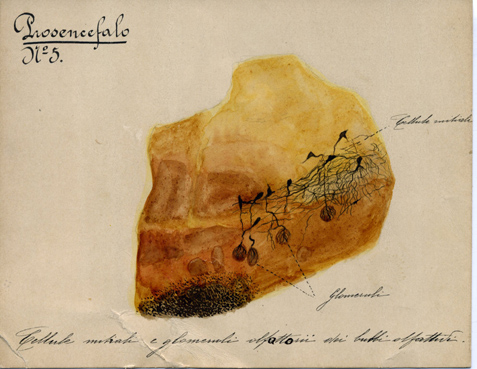 Prosencefalo
Nº 5.
Cellule mitrali
Glomeruli
Cellule mitrali e glomeruli olfattorii dei bulbi olfattivi.